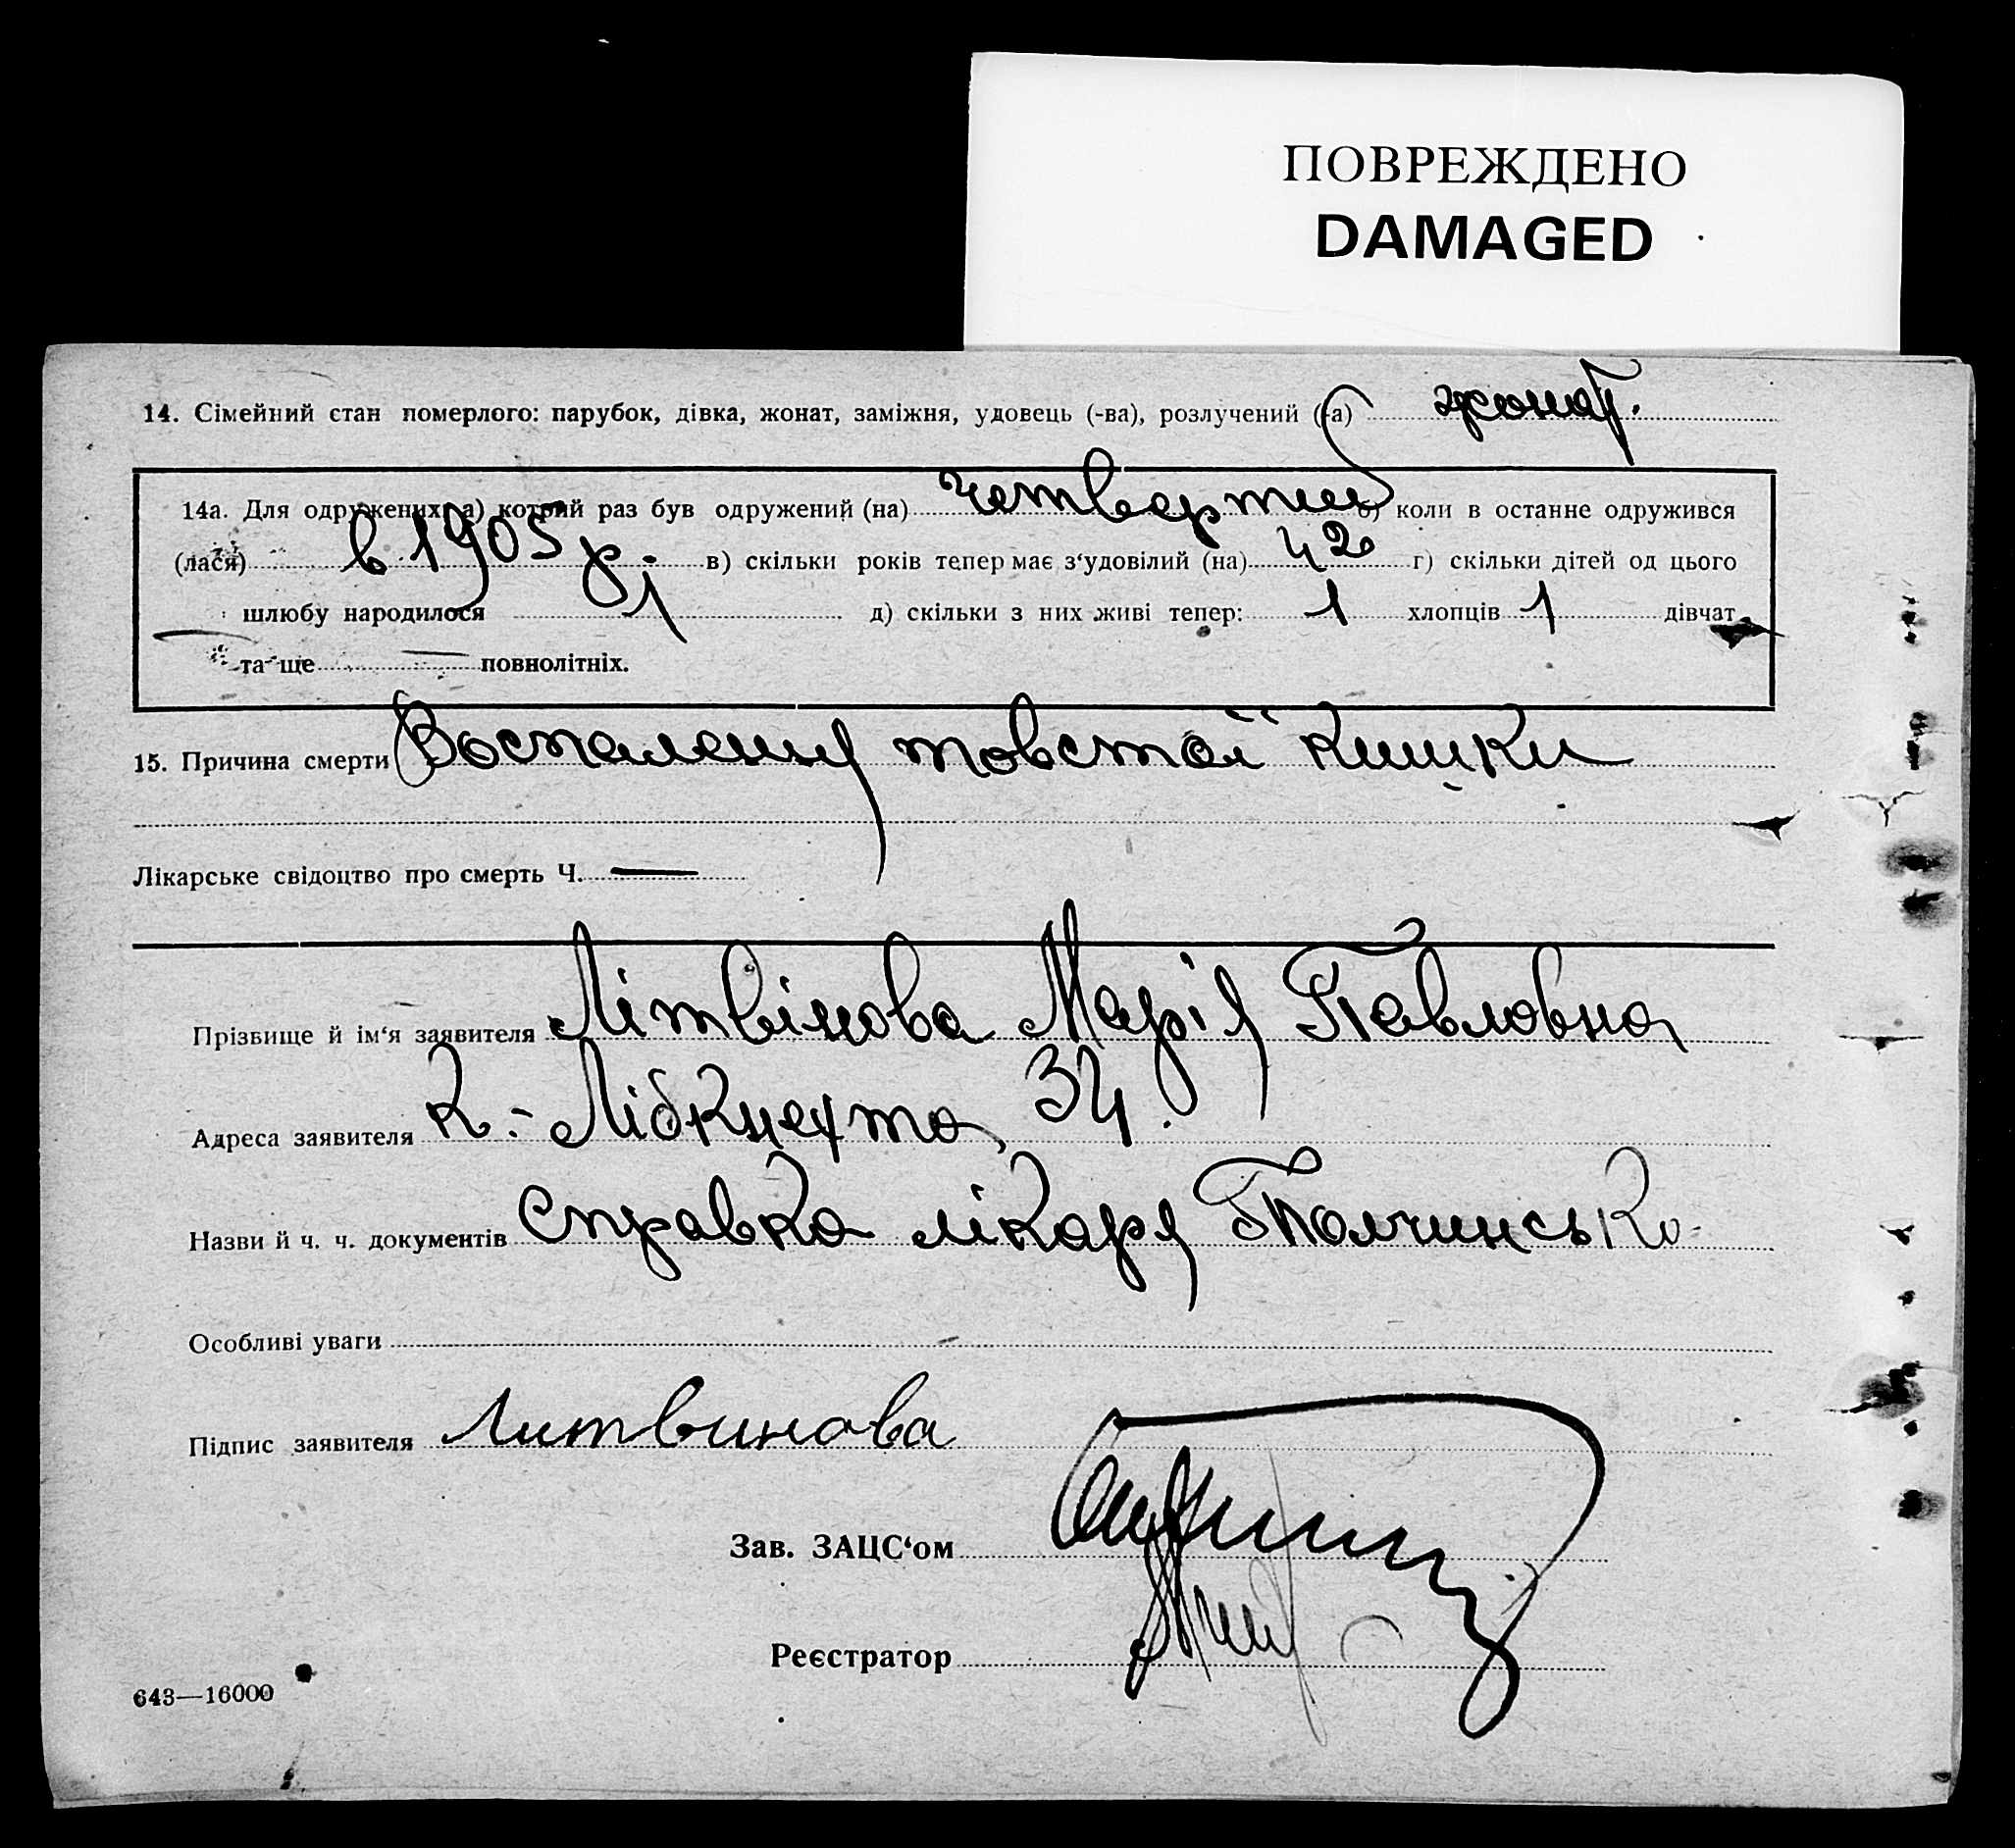 ПОВРЕЖДЕНО
DAMAGED
14. Сімейний стан померлого: парубок, дівка, жонат, заміжня, удовець (-ва), розлучений (-а) жонат.
14а. Для одружених: а) котрий раз був одружений (на) четвертий б) коли в останнє одружився
(лася) в 1905 р. в) скільки років тепер має з‘удовілий (на) 42 г) скільки дітей од цього
шлюбу народилося 1 д) скільки з них живі тепер: 1 хлопців 1 дівчат
та ще — повнолітніх.
15. Причина смерти Воспаления товстої кишки
Лікарське свідоцтво про смерть Ч. —
Прізвище й ім‘я заявителя Літвінова Марія Павловна
Адреса заявителя К.-Лібкнехта, 34.
Назви й ч. ч. документів Справка лікаря Толчинсько-
Особливі уваги
Підпис заявителя Литвинова
Зав. ЗАЦС‘ом
Реєстратор
643—16000